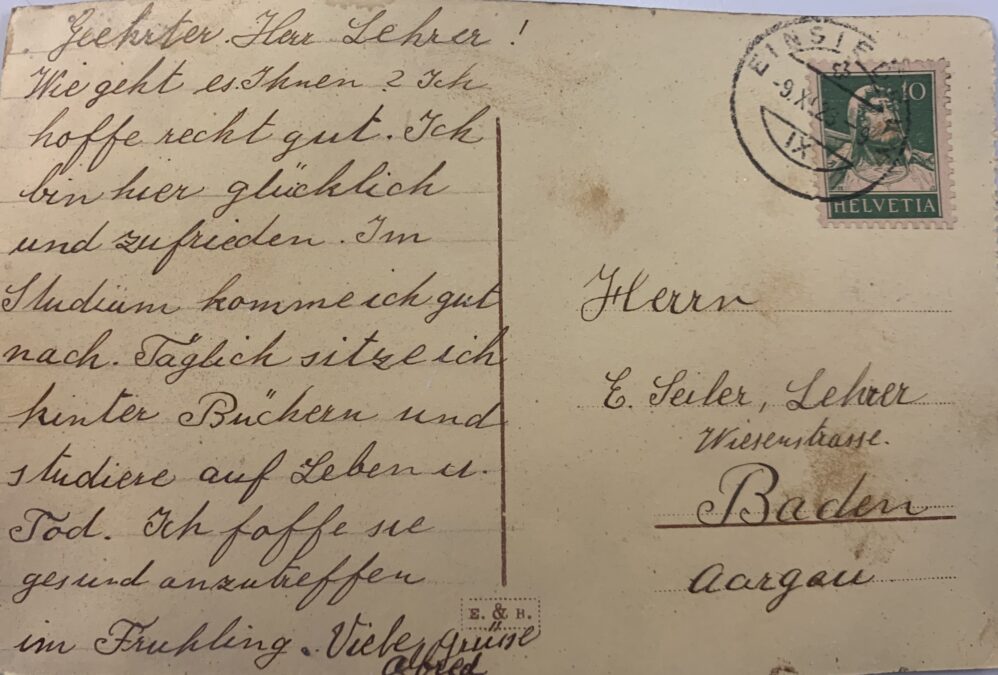 Geehrter Herr Lehrer!
Wie geht es Ihnen? Ich
hoffe recht gut. Ich
bin hier glücklich
und zufrieden. Im
Studium komme ich gut
nach. Täglich sitze ich
hinter Büchern und
studiere auf Leben u.
Tod. Ich foffe sie
gesund anzutreffen
im Fruhling. Viele Grüsse
EINSIE
-9.XI.
XI
10
HELVETIA
Herrn
E. Seiler, Lehrer
Wiesenstrasse.
Baden
Aargau
E. & B.